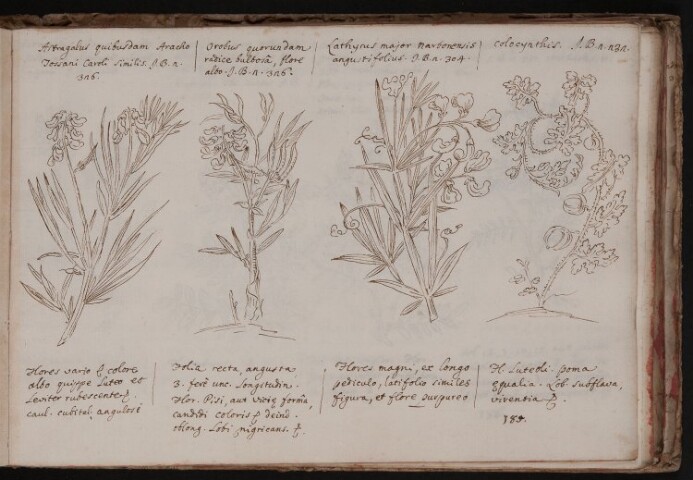 Astragalus quibusdam Aracho
Tossani Caroli similis. J. B. n.
326.
Orobus quorundam
radice bulbosâ, flore
albo. J. B. n. 326.
Lathyrus major narbonensis
angustifolius. J. B. n. 304.
colocynthis. J. B. n.
Flores vario colore
albo quippe Luteo et
Leviter rubescente
caul. cubital. angulosi
Folia recta, angusta
3. ferè unc. Longitudin.
Flor. Pisi, aut viciæ formâ,
candidi coloris deind.
oblong. Lobi nigricans.
Flores magni, ex longo
pediculo, latifolio similes
figura, et flore purpureo
Fl. Luteoli. poma
æqualia. Lob. subflava,
virentia